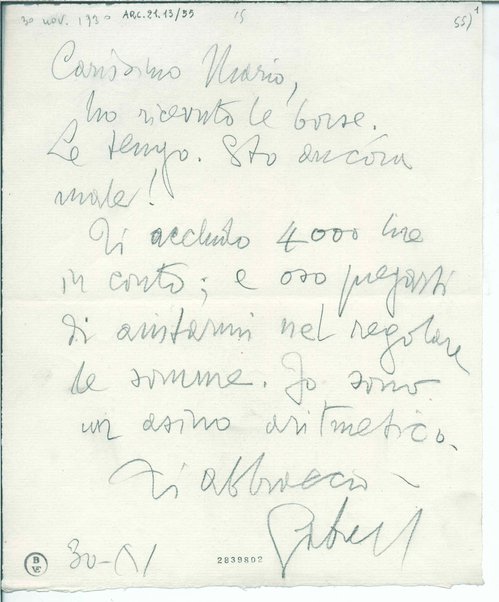 30 nov. 1930 ARC.21.13/55 15 55) 1
Carissimo Mario,
ho ricevuto le borse.
Le tengo. Sto ancóra
male!
Ti accludo 4000 lire
in conto; e oso pregarti
di aiutarmi nel regolare
le somme. Io sono
un asino aritmetico.
Ti abbraccio
Gabriel
30-XI
B VE 2839802